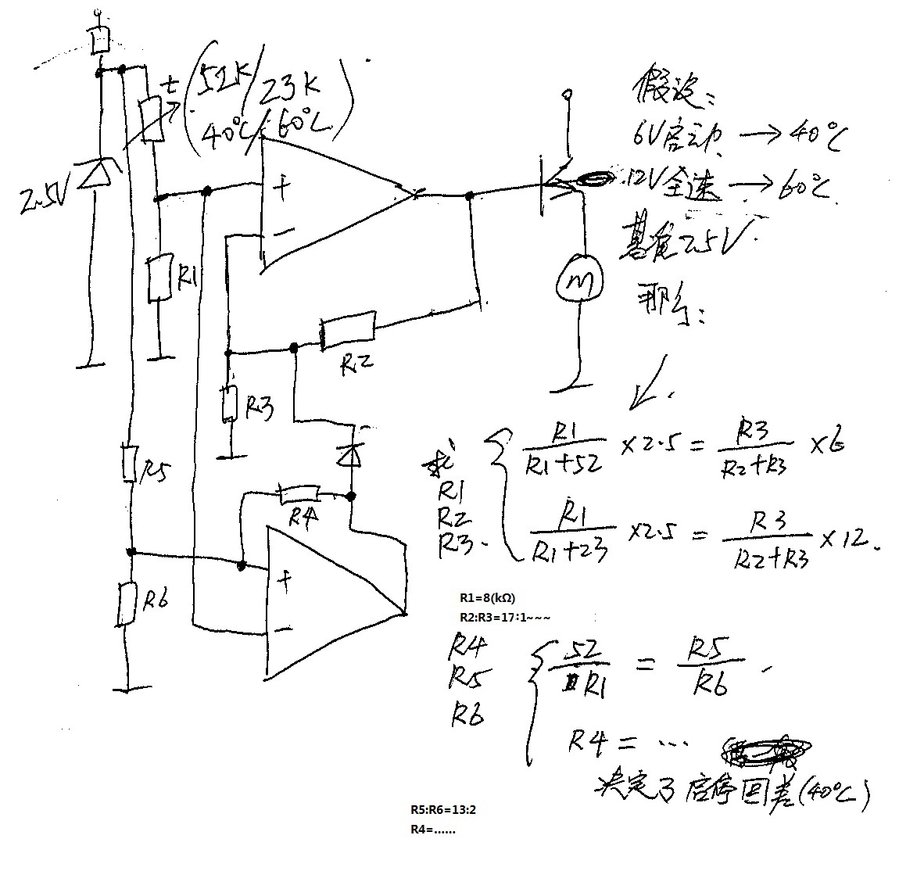 t (52K/23K
40℃/60℃)
2.5V
+
−
R1
R2
R3
R5
R4
R6
+
−
m
假设:
6V启动 → 40℃
12V全速 → 60℃
基准2.5V.
那么:
求
R1
R2
R3.
R1/(R1+52) ×2.5 = R3/(R2+R3) ×6
R1/(R1+23) ×2.5 = R3/(R2+R3) ×12.
R1=8(kΩ)
R2:R3=17:1~~~
R4
R5
R6
52/R1 = R5/R6
R4 = …
决定了启停回差(40℃)
R5:R6=13:2
R4=……